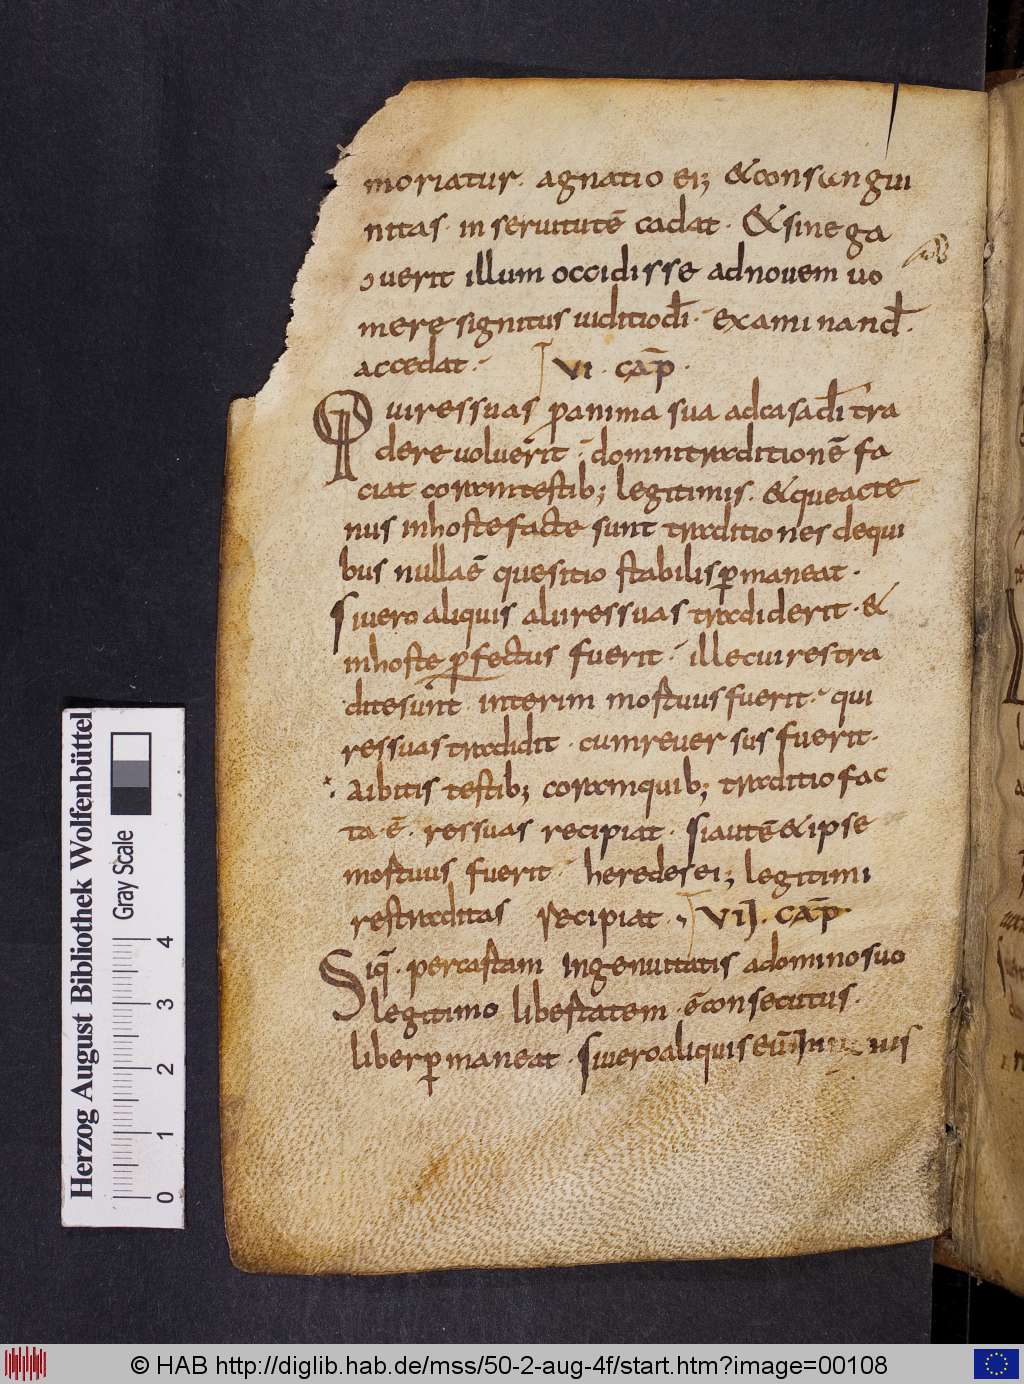 moriatur. agnatio ei; & consangui
nitas. in seruitutē cadat. & si nega
uerit illum occidisse ad novem uo
meres ignitus iuditio d̄i. examinand̄.
accedat. VI. CAP̄.
Qui res suas p anima sua ad casa d̄i tra
dere voluerit. domni traditionē fa
ciat coram testib; legitimis. & que acte
nus in hoste facte sunt traditiones de qui
bus nulla ē quesitio stabilis pmaneat.
Si uero aliquis alii res suas tradiderit. &
in hoste pfectus fuerit. ille cui res tra
dite sunt interim mortuus fuerit. qui
res suas tradidit. cum reuersus fuerit.
aibitis testib; coram quib; traditio fac
ta ē. res suas recipiat. Si autē & ipse
mortuus fuerit heredes ei; legitimi
res traditas recipiat. VII. CAP̄.
Siq̄. per cartam ingenuitatis a domino suo
legitimo libertatem ē consecutus.
liber pmaneat. Si uero aliquis eū
Herzog August Bibliothek Wolfenbüttel
Gray Scale
0 1 2 3 4
© HAB http://diglib.hab.de/mss/50-2-aug-4f/start.htm?image=00108